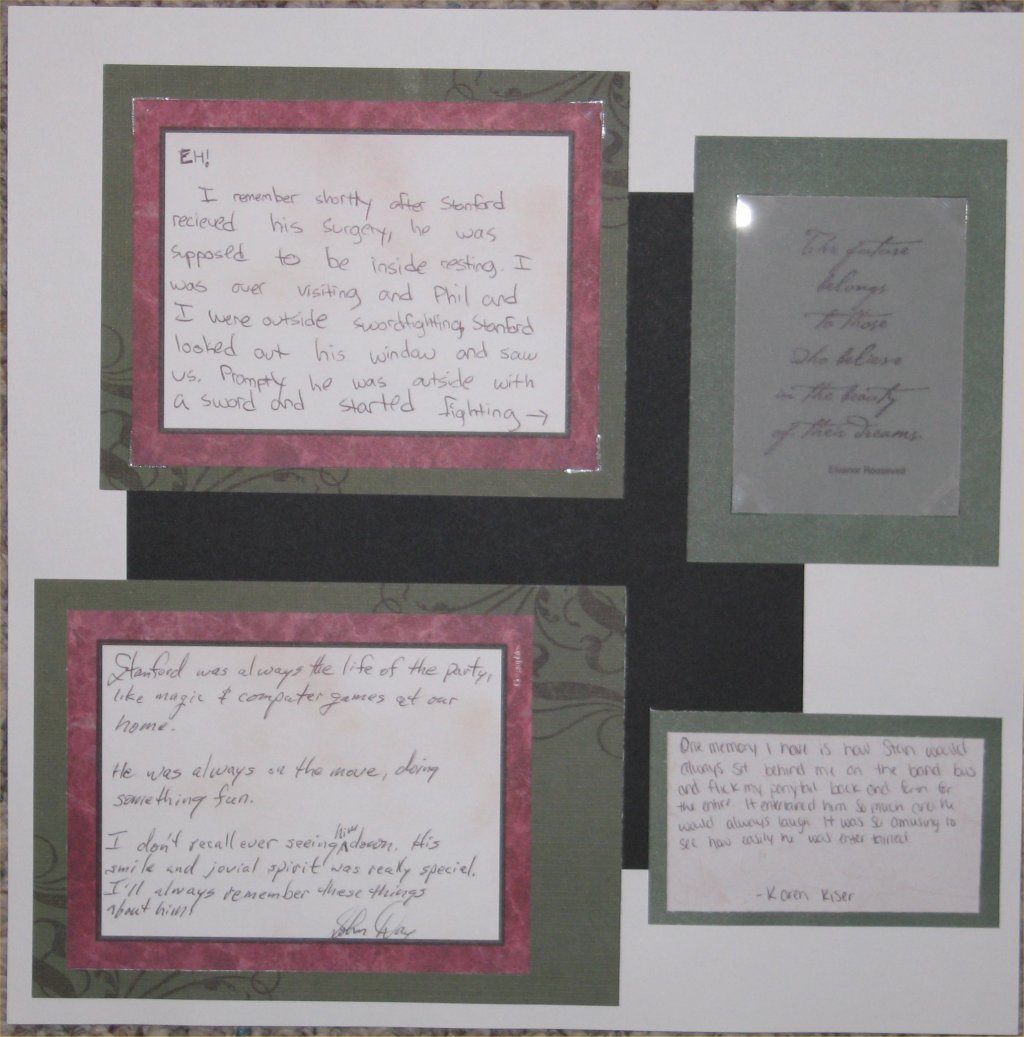 EH!
I remember shortly after Stanford
recieved his surgery, he was
supposed to be inside resting. I
was over visiting and Phil and
I were outside swordfighting, Stanford
looked out his window and saw
us. Promptly he was outside with
a sword and started fighting →
The future
belongs
to those
who believe
in the beauty
of their dreams.
Eleanor Roosevelt
Stanford was always the life of the party,
like magic & computer games at our
home.
He was always on the move, doing
something fun.
I don't recall ever seeing him down. His
smile and jovial spirit was really special.
I'll always remember these things
about him.
John
One memory I have is how Stan would
always sit behind me on the band bus
and flick my ponytail back and forth for
the entire. It entertained him so much and he
would always laugh. It was so amusing to
see how easily he was entertained.
-Karen Kiser